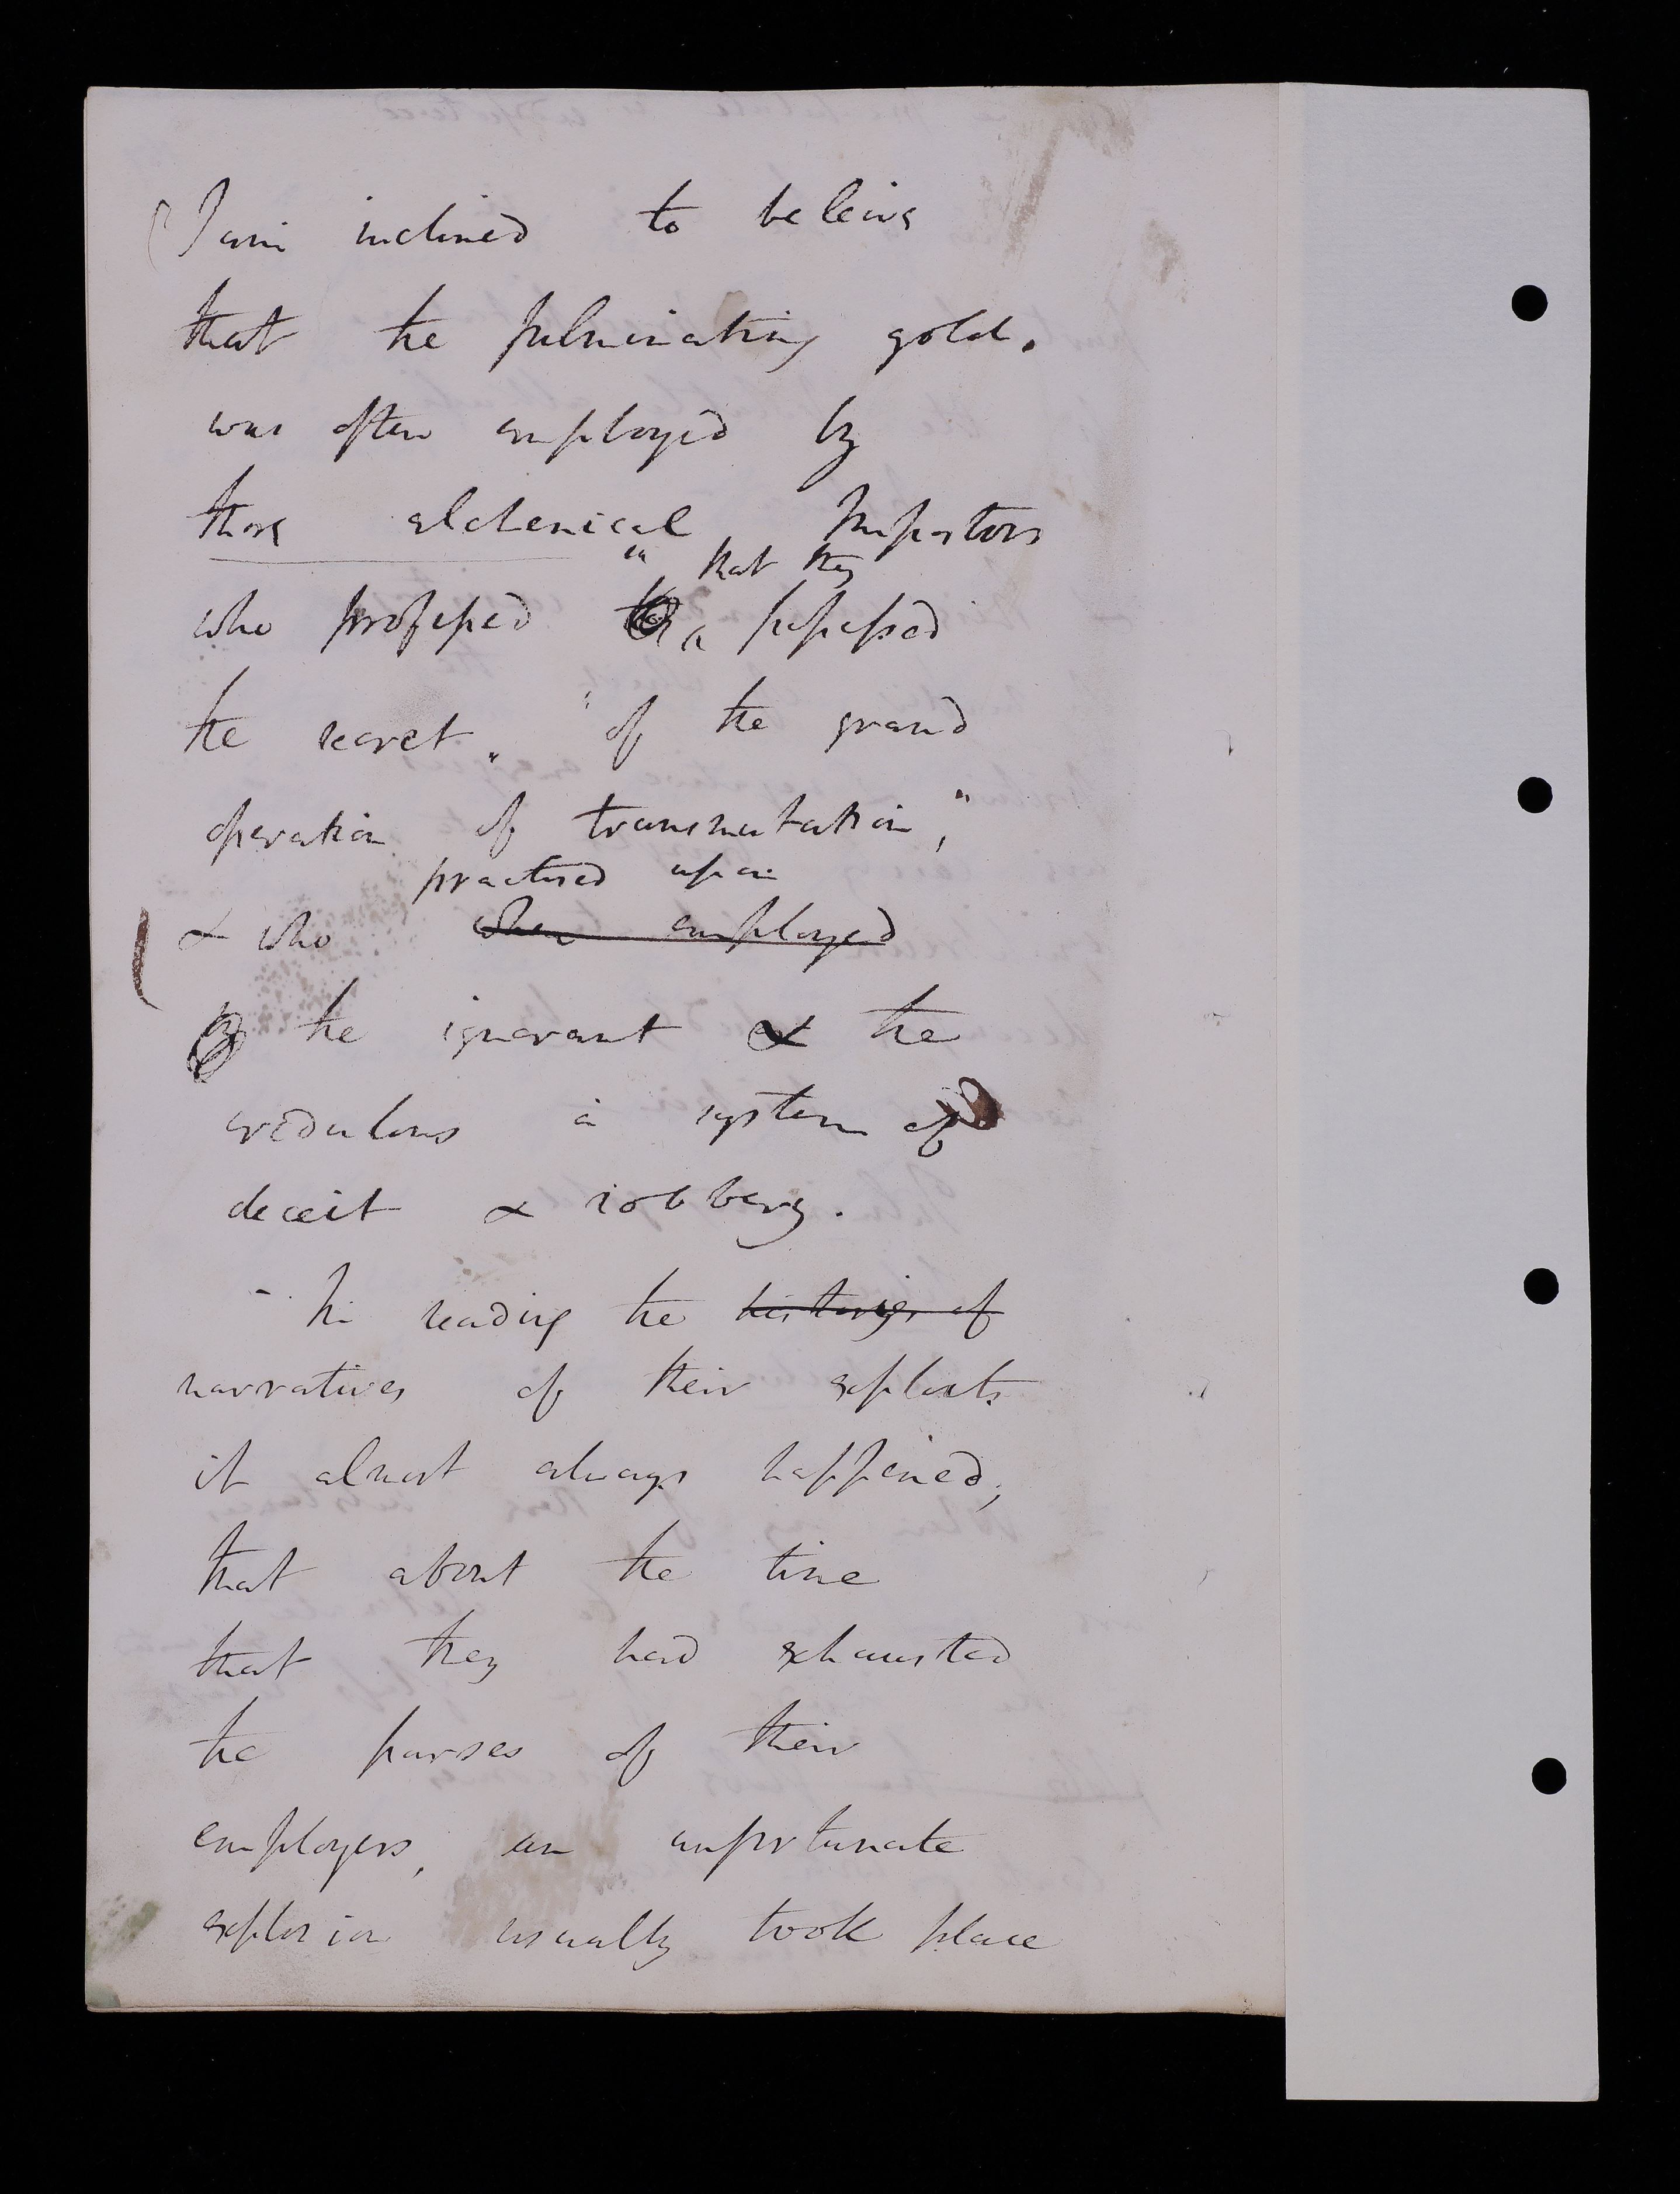 (I am inclined to beleive
that the fulminating gold.
was often employed by
those alchemical Impostors
that they
who professed possessed
the secret " of the grand
operation of transmutation,"
practised upon
& who when employed
the ignorant & the
credulous a system of
deceit & robbery.
- In reading the histories of
narratives of their exploits
it almost always happened,
that about the time
that they had exhausted
the purses of their
employers, an unfortunate
explosion usually took place